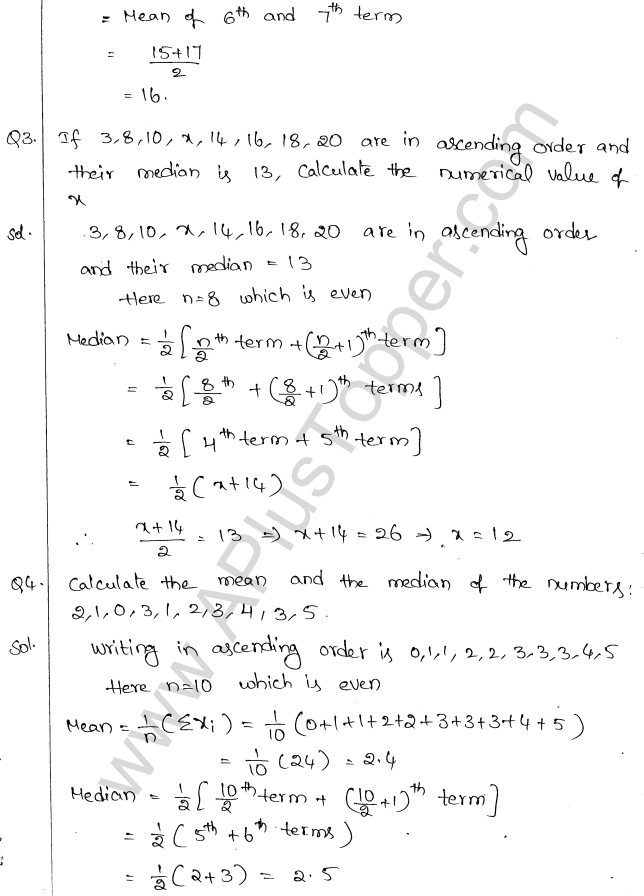 = Mean of 6th and 7th term
= (15+17)/2
= 16.
Q3. If 3,8,10, x,14,16,18,20 are in ascending order and
their median is 13, Calculate the numerical value of
x
Sol. 3,8,10, x,14,16,18,20 are in ascending order
and their median = 13
Here n=8 which is even
Median = 1/2 [n/2 th term + (n/2 +1)th term]
= 1/2 [8/2 th + (8/2 +1)th terms]
= 1/2 [4th term + 5th term]
= 1/2 (x+14)
∴ (x+14)/2 = 13 ⇒ x+14 = 26 ⇒ x = 12
Q4. Calculate the mean and the median of the numbers:
2,1,0,3,1,2,3,4,3,5.
Sol. Writing in ascending order is 0,1,1,2,2,3,3,3,4,5
Here n=10 which is even
Mean = 1/n (Σxi) = 1/10 (0+1+1+2+2+3+3+3+4+5)
= 1/10 (24) = 2.4
Median = 1/2 [10/2 th term + (10/2 +1)th term]
= 1/2 (5th + 6th terms)
= 1/2 (2+3) = 2.5
www.APlusTopper.com